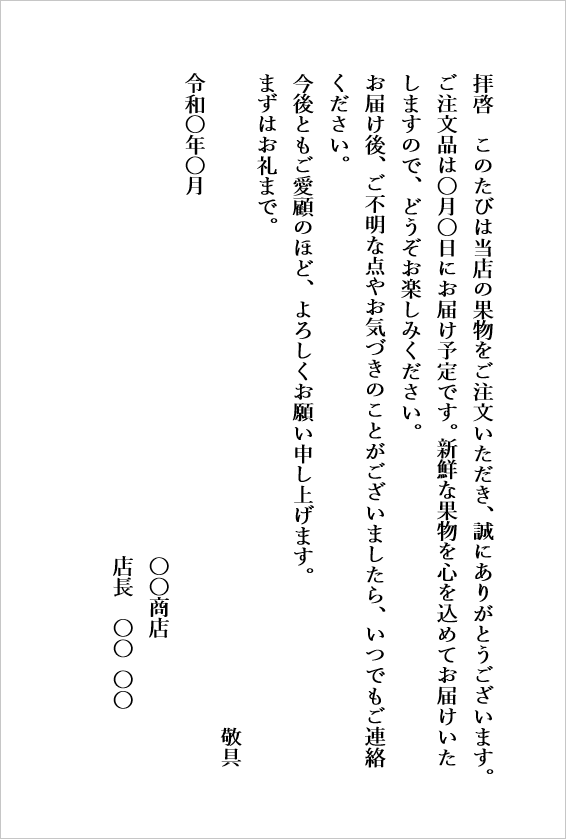 拝啓　このたびは当店の果物をご注文いただき、誠にありがとうございます。
ご注文品は〇月〇日にお届け予定です。新鮮な果物を心を込めてお届けいた
しますので、どうぞお楽しみください。
お届け後、ご不明な点やお気づきのことがございましたら、いつでもご連絡
ください。
今後ともご愛顧のほど、よろしくお願い申し上げます。
まずはお礼まで。
敬具
令和〇年〇月
〇〇商店
店長　〇〇 〇〇